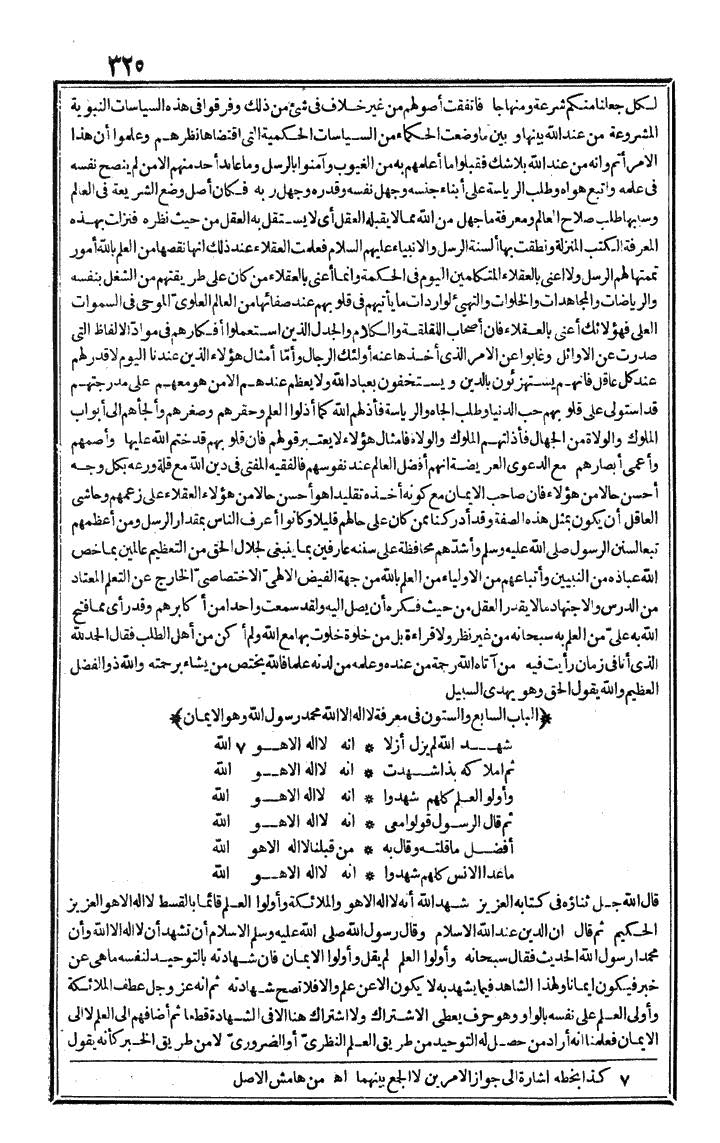 ٣٢٥
لكل جعلنا منكم شرعة ومنهاجا فاتفقت أصولهم من غير خلاف فى شئ من ذلك وفرقوا فى هذه السياسات النبوية
المشروعة من عند الله بينها و بين ما وضعت الحكماء من السياسات الحكمية التى اقتضاها نظرهم وعلموا أن هذا
الامر أتم وانه من عند الله بلا شك فقبلوا ما أعلمهم به من الغيوب وآمنوا بالرسل وما عاند أحد منهم الا من لم ينصح نفسه
فى علمه واتبع هواه وطلب الرياسة على أبناء جنسه وجهل نفسه وقدره وجهل ربه فكان أصل وضع الشريعة فى العالم
وسببها طلب صلاح العالم ومعرفة ما جهل من الله مما لا يقبله العقل أى لا يستقل به العقل من حيث نظره فنزلت بهذه
المعرفة الكتب المنزلة ونطقت بها ألسنة الرسل والانبياء عليهم السلام فعلمت العقلاء عند ذلك انها نقصها من العلم بالله أمور
تممتها لهم الرسل ولا اعنى بالعقلاء المتكلمين اليوم فى الحكمة وانما أعنى بالعقلاء من كان على طريقتهم من الشغل بنفسه
والرياضات والمجاهدات والخلوات والتهيئ لواردات ما يأتيهم فى قلوبهم عند صفائها من العالم العلوىّ الموحى فى السموات
العلى فهؤلائك أعنى بالعقلاء فان أصحاب اللقلقة والكلام والجدل الذين استعملوا أفكارهم فى موادّ الالفاظ التى
صدرت عن الاوائل وغابوا عن الامر الذى أخذها عنه أولئك الرجال وأمّا أمثال هؤلاء الذين عندنا اليوم لا قدر لهم
عند كل عاقل فانهم يستهزئون بالدين و يستخفون بعباد الله ولا يعظم عندهم الا من هو معهم على مدرجتهم
قد استولى على قلوبهم حب الدنيا وطلب الجاه والرياسة فأذلهم الله كما أذلوا العلم وحقرهم وصغرهم وألجأهم الى أبواب
الملوك والولاة من الجهال فأذلتهم الملوك والولاة فامثال هؤلاء لا يعتبر قولهم فان قلوبهم قد ختم الله عليها وأصمهم
وأعمى أبصارهم مع الدعوى العريضة انهم أفضل العالم عند نفوسهم فالفقيه المفتى فى دين الله مع قلة ورعه بكل وجه
أحسن حالا من هؤلاء فان صاحب الايمان مع كونه أخذه تقليدا هو أحسن حالا من هؤلاء العقلاء على زعمهم وحاشى
العاقل أن يكون بمثل هذه الصفة وقد أدركنا ممن كان على حالهم قليلا وكانوا أعرف الناس بمقدار الرسل ومن أعظمهم
تبعا لسنن الرسول صلى الله عليه وسلم وأشدّهم محافظة على سننه عارفين بما ينبغى لجلال الحق من التعظيم عالمين بما خص
الله عباده من النبيين وأتباعهم من الاولياء من العلم بالله من جهة الفيض الالهىّ الاختصاصىّ الخارج عن التعلم المعتاد
من الدرس والاجتهاد ما لا يقدر العقل من حيث فكره أن يصل اليه ولقد سمعت واحدا من أكابرهم وقد رأى مما فتح
الله به علىّ من العلم به سبحانه من غير نظر ولا قراءة بل من خلوة خلوت بها مع الله ولم أكن من أهل الطلب فقال الحمد لله
الذى أنا فى زمان رأيت فيه من آتاه الله رحمة من عنده وعلمه من لدنه علما فالله يختص من يشاء برحمته والله ذو الفضل
العظيم والله يقول الحق وهو يهدى السبيل
﴿الباب السابع والستون فى معرفة لا اله الا الله محمد رسول الله وهو الايمان﴾
شهد الله لم يزل أزلا * انه لا اله الا هو ٧ الله
ثم املاكه بذا شهدت * انه لا اله الا هو الله
وأولو العلم كلهم شهدوا * انه لا اله الا هو الله
ثم قال الرسول قولوا معى * انه لا اله الا هو الله
أفضل ما قلته وقال به * من قبلنا لا اله الا هو الله
ما عدا الانس كلهم شهدوا * انه لا اله الا هو الله
قال الله جل ثناؤه فى كتابه العزيز شهد الله أنه لا اله الا هو والملائكة وأولوا العلم قائما بالقسط لا اله الا هو العزيز
الحكيم ثم قال ان الدين عند الله الاسلام وقال رسول الله صلى الله عليه وسلم الاسلام أن تشهد أن لا اله الا الله وأن
محمدا رسول الله الحديث فقال سبحانه وأولوا العلم لم يقل وأولوا الايمان فان شهادته بالتوحيد لنفسه ما هى عن
خبر فيكون ايمانا ولهذا الشاهد فيما يشهد به لا يكون الا عن علم والا فلا تصح شهادته ثم انه عز وجل عطف الملائكة
وأولى العلم على نفسه بالواو وهو حرف يعطى الاشتراك ولا اشتراك هنا الا فى الشهادة قطعا ثم أضافهم الى العلم لا الى
الايمان فعلمنا انه أراد من حصل له التوحيد من طريق العلم النظرىّ أو الضرورىّ لا من طريق الخبر كأنه يقول
٧ كذا بخطه اشارة الى جواز الامرين لا الجمع بينهما اه من هامش الاصل